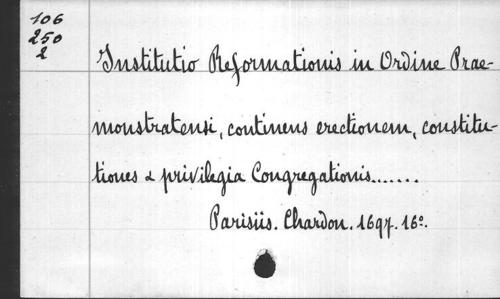 106
250
2
Institutio Reformationis in Ordine Prae-
monstratensi, continens erectionem, constitu-
tiones & privilegia Congregationis.......
Parisiis. Chardon. 1697. 16º.